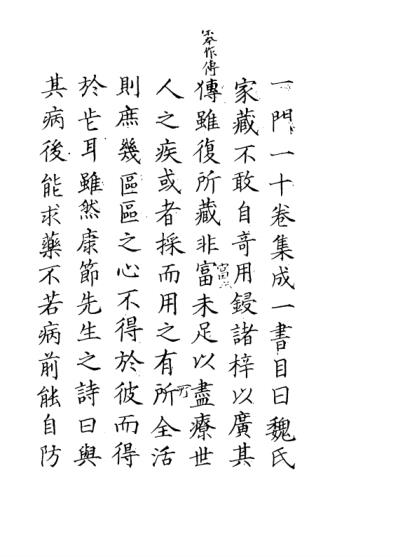 一門一十卷集成一書目曰魏氏
家藏不敢自奇用鋟諸梓以廣其
本作傳
雖復所藏非富未足以盡療世
人之疾或者採而用之有所全活
則庶幾區區之心不得於彼而得
於耳雖然康節先生之詩曰與
其病後能求藥不若病前能自防